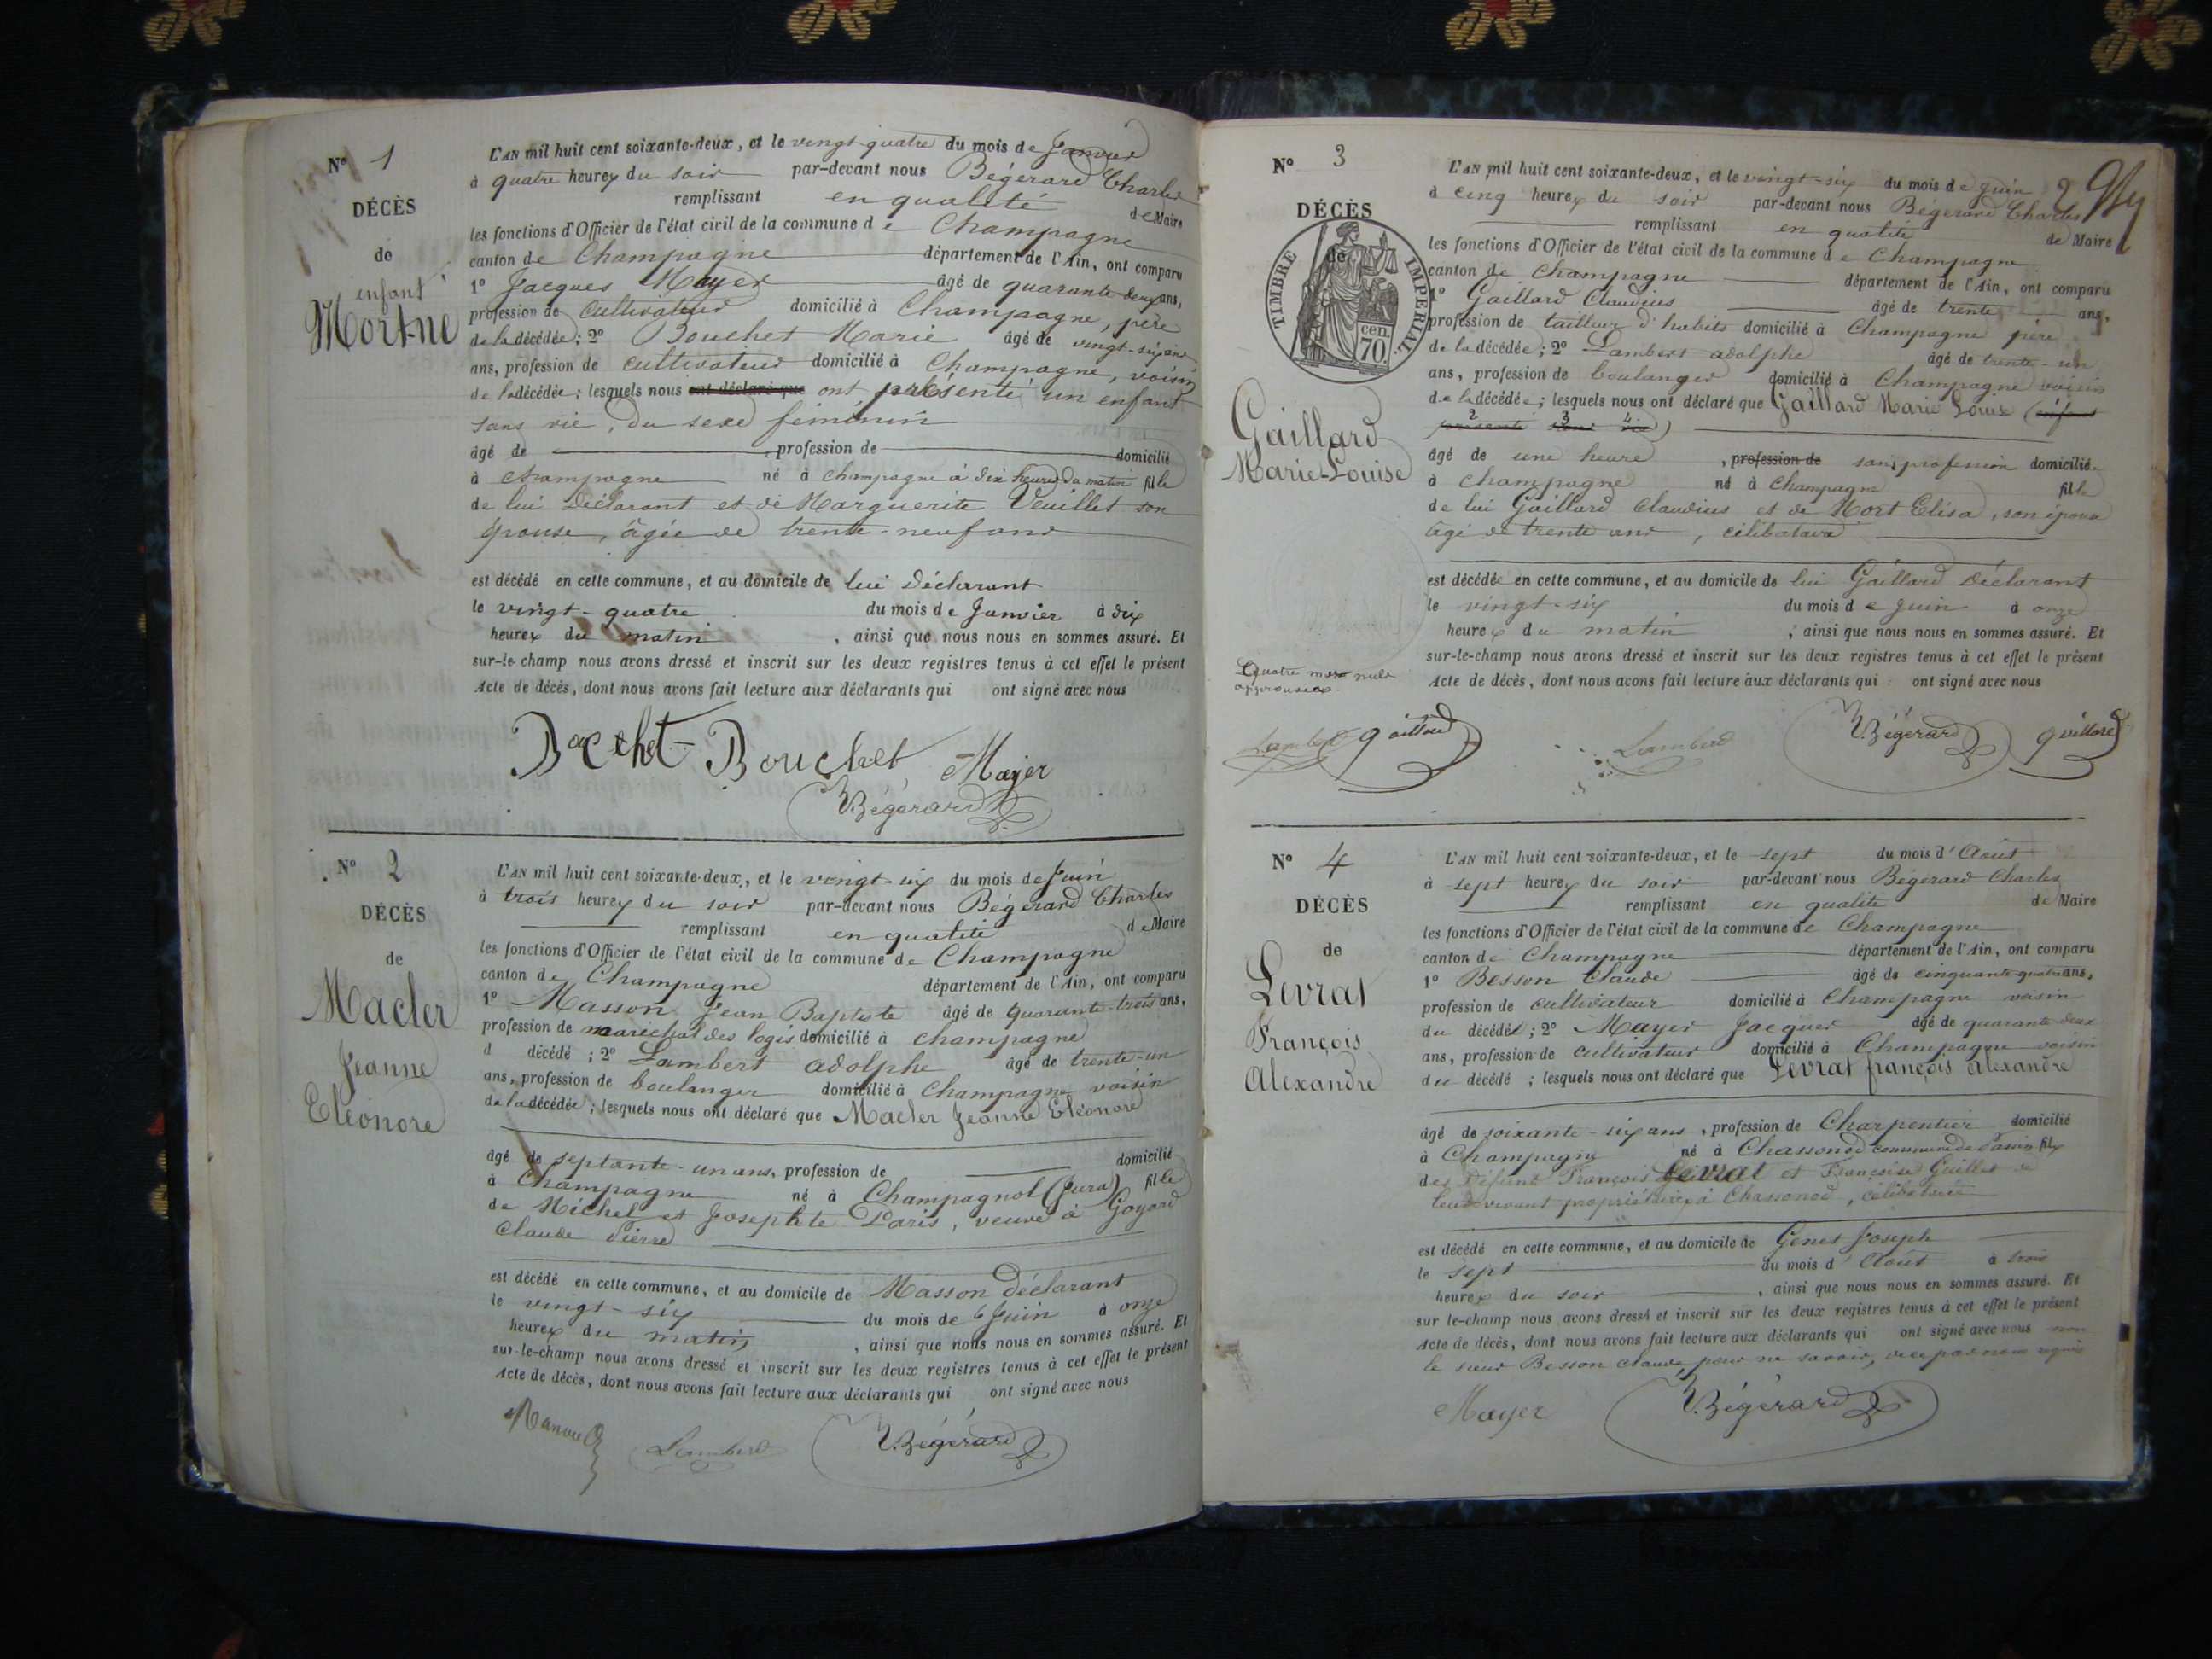 Nº 1
DÉCÈS
de
enfant
Mort-né
L'AN mil huit cent soixante-deux, et le vingt-quatre du mois de Janvier
à quatre heures du soir par-devant nous Bégérard Charles
remplissant en qualité de Maire
les fonctions d'Officier de l'état civil de la commune de Champagne
canton de Champagne département de l'Ain, ont comparu
1º Jacques Mayer âgé de quarante-deux ans,
profession de cultivateur domicilié à Champagne, père
de la décédée; 2º Bouchet Marie âgé de vingt-six ans
ans, profession de cultivateur domicilié à Champagne, voisin
de la décédée; lesquels nous ont déclaré que ont présenté un enfant
sans vie, du sexe féminin
âgé de , profession de domicilié
à champagne né à champagne à dix heures du matin fille
de lui déclarant et de Marguerite Veuillet son
épouse, âgée de trente-neuf ans
est décédé en cette commune, et au domicile de lui déclarant
le vingt-quatre du mois de Janvier à dix
heures du matin , ainsi que nous nous en sommes assuré. Et
sur-le-champ nous avons dressé et inscrit sur les deux registres tenus à cet effet le présent
Acte de décès, dont nous avons fait lecture aux déclarants qui ont signé avec nous
Bouchet Mayer
Bégérard
Nº 2
DÉCÈS
de
Macler
Jeanne
Eléonore
L'AN mil huit cent soixante-deux, et le vingt-six du mois de Juin
à trois heures du soir par-devant nous Bégérard Charles
remplissant en qualité de Maire
les fonctions d'Officier de l'état civil de la commune de Champagne
canton de Champagne département de l'Ain, ont comparu
1º Masson Jean Baptiste âgé de quarante-trois ans,
profession de maréchal des logis domicilié à champagne
d décédé ; 2º Lambert adolphe âgé de trente-un
ans, profession de boulanger domicilié à Champagne voisin
de la décédée; lesquels nous ont déclaré que Macler Jeanne Eléonore
âgé de septante-un ans, profession de domicilié
à Champagne né à Champagnol (Jura) fille
de Michel et Josephte Paris, veuve à Goyard
Claude Pierre
est décédé en cette commune, et au domicile de Masson déclarant
le vingt-six du mois de Juin à onze
heures du matin , ainsi que nous nous en sommes assuré. Et
sur-le-champ nous avons dressé et inscrit sur les deux registres tenus à cet effet le présent
Acte de décès, dont nous avons fait lecture aux déclarants qui ont signé avec nous
Lambert Bégérard
Nº 3
DÉCÈS
de
TIMBRE IMPERIAL
70 cen
Gaillard
Marie-Louise
2
L'AN mil huit cent soixante-deux, et le vingt-six du mois de juin
à cinq heures du soir par-devant nous Bégérard Charles
remplissant en qualité de Maire
les fonctions d'Officier de l'état civil de la commune de Champagne
canton de Champagne département de l'Ain, ont comparu
1º Gaillard Claudius âgé de trente ans,
profession de tailleur d'habits domicilié à Champagne père
de la décédée; 2º Lambert adolphe âgé de trente-un
ans, profession de boulanger domicilié à Champagne voisin
de la décédée; lesquels nous ont déclaré que Gaillard Marie Louise (enfant
2 3 4
présenté sans vie)
âgé de une heure , profession de sans profession domicilié
à Champagne né à Champagne fille
de lui Gaillard Claudius et de Mort Elisa, son épouse
âgé de trente ans, célibataire
est décédée en cette commune, et au domicile de lui Gaillard déclarant
le vingt-six du mois de juin à onze
heures du matin , ainsi que nous nous en sommes assuré. Et
sur-le-champ nous avons dressé et inscrit sur les deux registres tenus à cet effet le présent
Acte de décès, dont nous avons fait lecture aux déclarants qui ont signé avec nous
Quatre mots nuls
approuvés
Lambert gaillard Lambert Bégérard gaillard
Nº 4
DÉCÈS
de
Levrat
François
Alexandre
L'AN mil huit cent soixante-deux, et le sept du mois d'Août
à sept heures du soir par-devant nous Bégérard Charles
remplissant en qualité de Maire
les fonctions d'Officier de l'état civil de la commune de Champagne
canton de Champagne département de l'Ain, ont comparu
1º Besson Claude âgé de cinquante-quatre ans,
profession de cultivateur domicilié à Champagne voisin
du décédé; 2º Mayer Jacques âgé de quarante-deux
ans, profession de cultivateur domicilié à Champagne voisin
du décédé ; lesquels nous ont déclaré que Levrat françois alexandre
âgé de soixante-six ans, profession de Charpentier domicilié
à Champagne né à Chassonod commune de Passin fils
des défunts François Levrat et Françoise Guillet de
leur vivant propriétaires à Chassonod, célibataire
est décédé en cette commune, et au domicile de Genet Joseph
le sept du mois d'Août à trois
heures du soir , ainsi que nous nous en sommes assuré. Et
sur le-champ nous avons dressé et inscrit sur les deux registres tenus à cet effet le présent
Acte de décès, dont nous avons fait lecture aux déclarants qui ont signé avec nous non
le sieur Besson Claude, pour ne savoir, de ce par nous requis
Mayer Bégérard